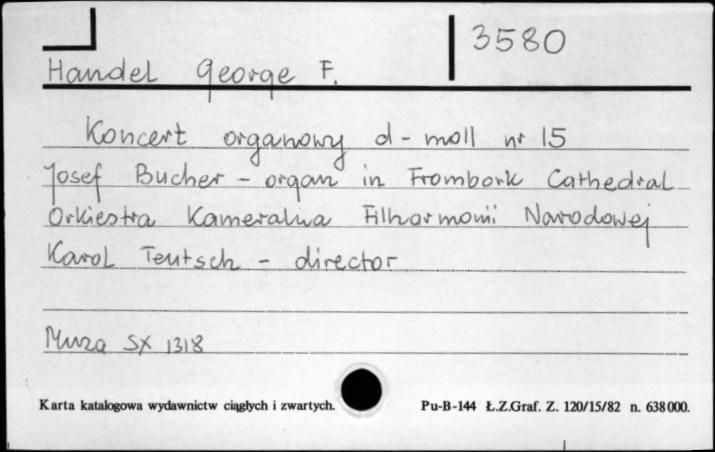 3580
Handel George F.
Koncert organowy d-moll nr 15
Josef Bucher - organ in Frombork Cathedral
Orkiestra Kameralna Filharmonii Narodowej
Karol Teutsch - director
Muza SX 1318
Karta katalogowa wydawnictw ciągłych i zwartych. Pu-B-144 Ł.Z.Graf. Z. 120/15/82 n. 638000.